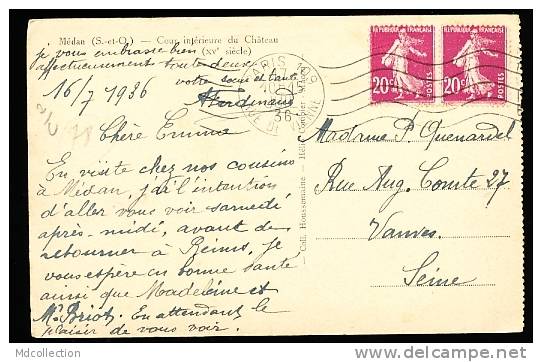 Médan (S.-et-O.) — Cour intérieure du Château
(XVe siècle)
je vous embrasse bien
affectueusement toute deux
votre soeur et tante
Ferdinande
16/7 1936
Chère Emma
En visite chez nos cousins
à Médan, j'ai l'intention
d'aller vous voir samedi
après-midi, avant de
retourner à Reims, je
vous espère en bonne santé
ainsi que Madeleine et
Mr Briot. En attendant le
plaisir de vous voir.
Coll. Houssemaine — Hélio Combier Mâcon
PARIS
36
REPUBLIQUE FRANÇAISE
20c
POSTES
REPUBLIQUE FRANÇAISE
20c
POSTES
Madame P. Quenardel
Rue Aug. Comte 27
Vanves.
Seine
MDcollection
http://mdcollection.delcampe.net